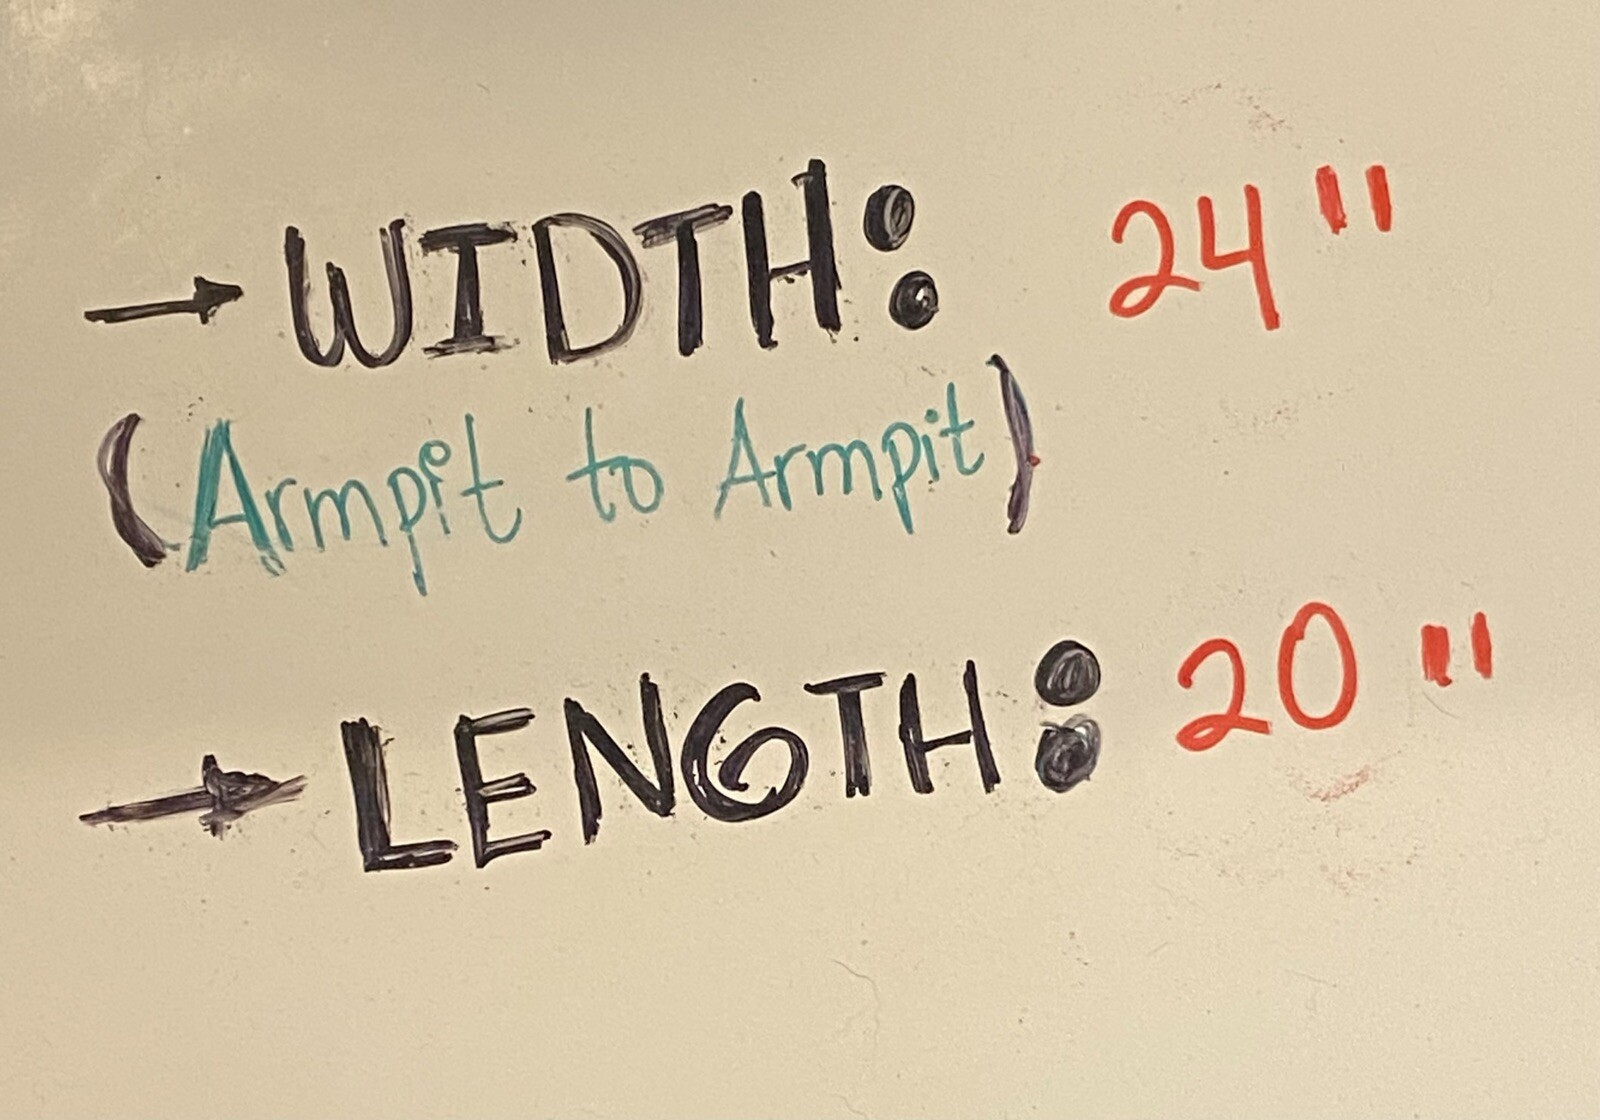 → WIDTH: 24"
(Armpit to Armpit)
→ LENGTH: 20"